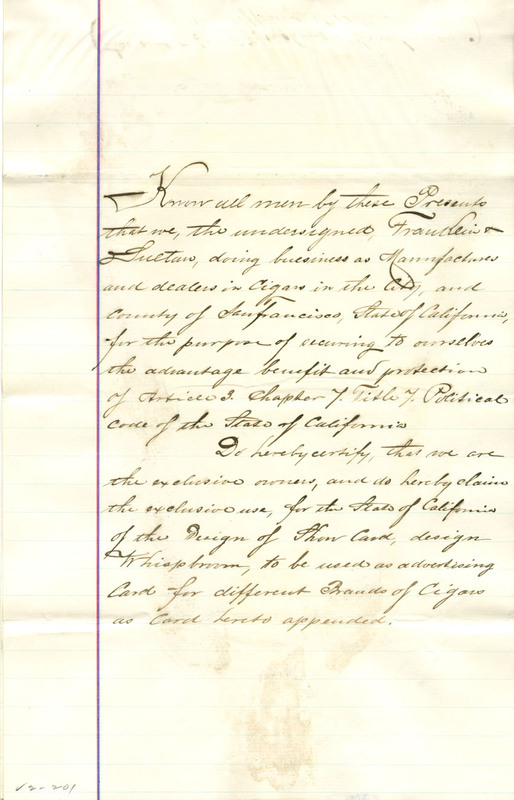 Know all men by these Presents
that we, the undersigned, Fraulein &
Sultan, doing buesiness as Manufactures
and dealers in Cigars in the City, and
County of San francisco, State of California,
for the purpose of securing to ourselves
the advantage benefit and protection
of Article 3. Chapter 7. Title 7. Political
code of the State of California
Do hereby certify, that we are
the exclusive owners, and do hereby claim
the exclusive use, for the State of California
of the Design of Show Card, design
Whispbroom, to be used as advertising
Card for different Brands of Cigars
as Card hereto appended.
V2-201